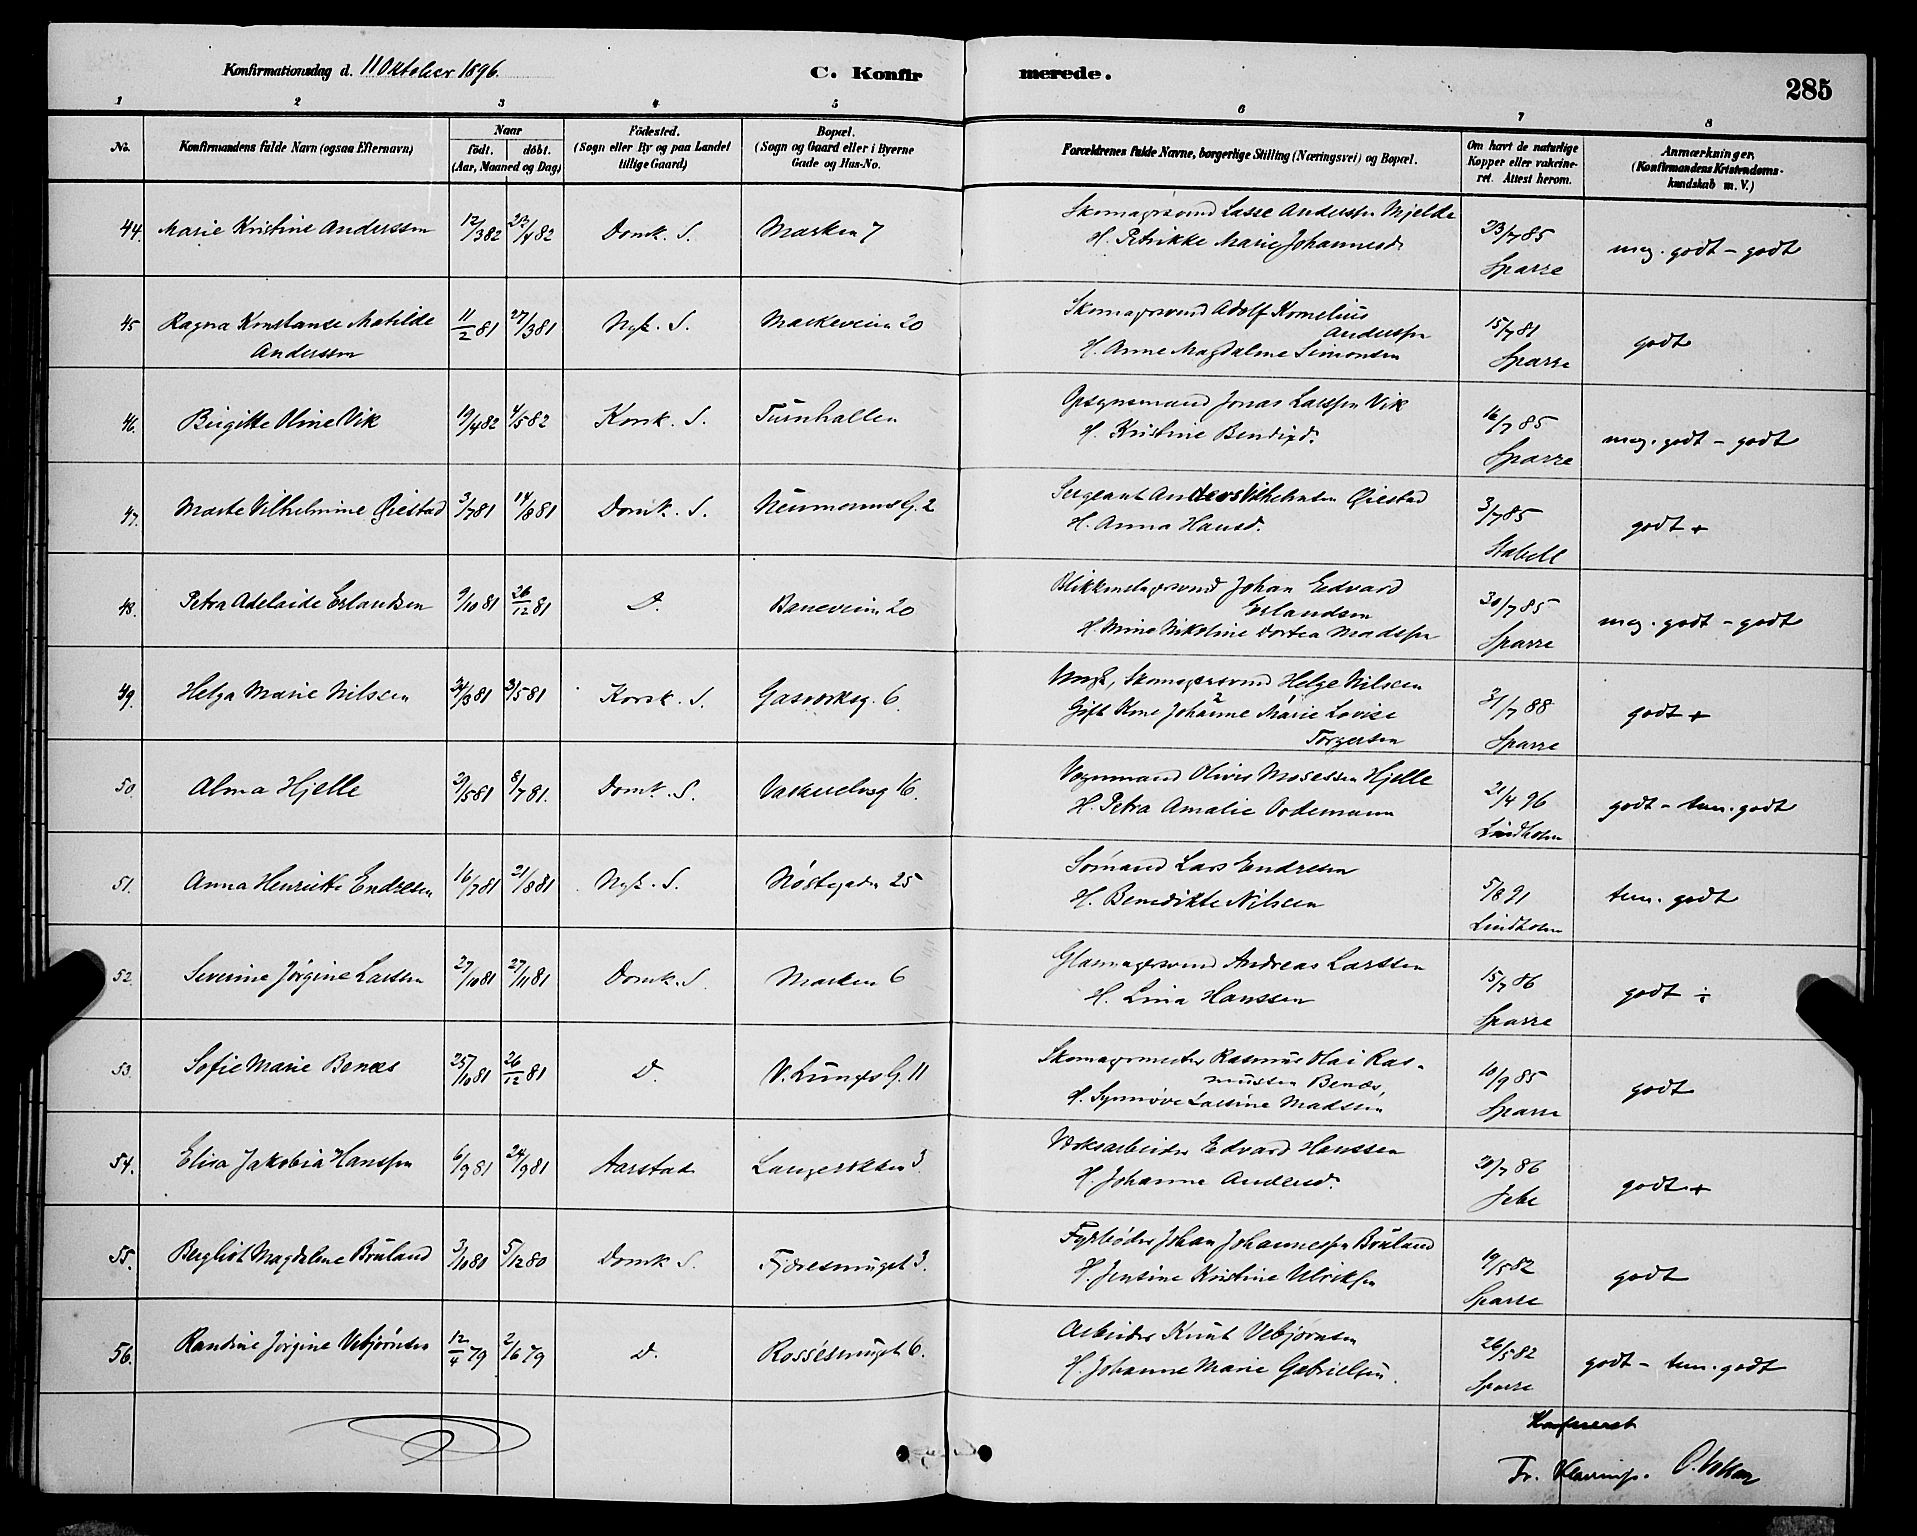 Konfirmationsdag d. 11 Oktober 1896.
C. Konfirmerede.
285
1 2 3 4 5 6 7 8
No.
Konfirmandens fulde Navn (ogsaa Efternavn)
Naar
födt. döbt.
(Aar, Maaned og Dag)
Födested.
(Sogn eller By og paa Landet
tillige Gaard)
Bopæl.
(Sogn og Gaard eller i Byerne
Gade og Hus-No.
Forældrenes fulde Navne, borgerlige Stilling (Næringsvei) og Bopæl.
Om havt de naturlige
Kopper eller vakcine-
ret. Attest herom.
Anmærkninger.
(Konfirmandens Kristendoms-
kundskab m. V.)
44. Marie Kristine Anderssen 12/3 82 23/4 82 Domk. S. Marken 7
Skomagersvend Lasse Anderssen Mjelde
H. Petrikke Marie Johannesd.
23/7 85
Sparre
meg. godt - godt
45 Ragna Konstanse Matilde
Anderssen
11/2 81 27/3 81 Nyk. S. Markeveien 20
Skomagersvend Adolf Kornelius
Anderssen
H. Anne Magdalene Simonsen
15/7 81
Sparre
godt
46. Birgitte Oline Vik 19/4 82 4/5 82 Korsk. S. Turnhallen
Opsynsmand Jonas Larssen Vik
H. Kristine Bendixd.
16/7 85
Sparre
meg. godt - godt
47. Marte Vilhelmine Øiestad 3/7 81 14/8 81 Domk. S. Neumanns G. 2
Sergeant Anders Vilhelmsen Øiestad
H. Anna Hansd.
3/7 85
Stabell
godt +
48. Petra Adelaide Erlandsen 9/10 81 26/12 81 D. Baneveien 20
Blikkenslagersvend Johan Edvard
Erlandsen
H. Nikoline Dortea Madssen
30/7 85
Sparre
meg. godt - godt
49. Helga Marie Nilssen 24/3 81 3/5 81 Korsk. S. Gasverksg. 6.
Ungk., Skomagersvend Helge Nilssen
Gift Kone Johanne Marie Lovise
Torgersen
31/7 88
Sparre
godt +
50. Alma Hjelle 3/5 81 8/7 81. Domk. S. Vaskerelvsg 16.
Vognmand Oliver Mosessen Hjelle
H. Petra Amalie Ordemann
21/4 96
Lindholm
godt - tem. godt
51. Anna Henrikke Endresen 16/7 81 21/8 81 Nyk. S. Nøstegaden 25
Sømand Lars Endresen
H. Benedikte Nilsen
5/8 91
Lindholm
tem. godt
52. Severine Jørgine Larsen 27/10 81 27/11 81 Domk. S. Marken 6
Glasmagersvend Andreas Larssen
H. Lina Hanssen
15/7 86
Sparre
godt ÷
53. Sofie Marie Benæs 25/10 81 26/12 81 D. V. Lungs G. 11
Skomagermester Rasmus Hai Ras-
mussen Benæs,
H. Synnøve Larsine Madsen
10/9 85
Sparre
godt
54. Elisa Jakobia Hanssen 6/9 81 24/9 81 Aarstad Langerokken 3.
Verksarbeider Edvard Hanssen
H. Johanne Andersd.
20/7 86
Jebe
godt +
55. Bergliot Magdalene Bruland 3/10 80 5/12 80 Domk S. Fjæresmuget 3.
Fyrbøder Johan Johannessen Bruland
H. Jensine Kristine Ulriksen
19/5 82
Sparre
godt
56. Randine Jørgine Vebjørnsen 12/4 79 2/6 79 D. Rossesmuget 6.
Arbeider Knut Vebjørnsen
H Johanne Marie Gabrielsen.
26/5 82
Sparre
godt - tem. godt
Konfereret